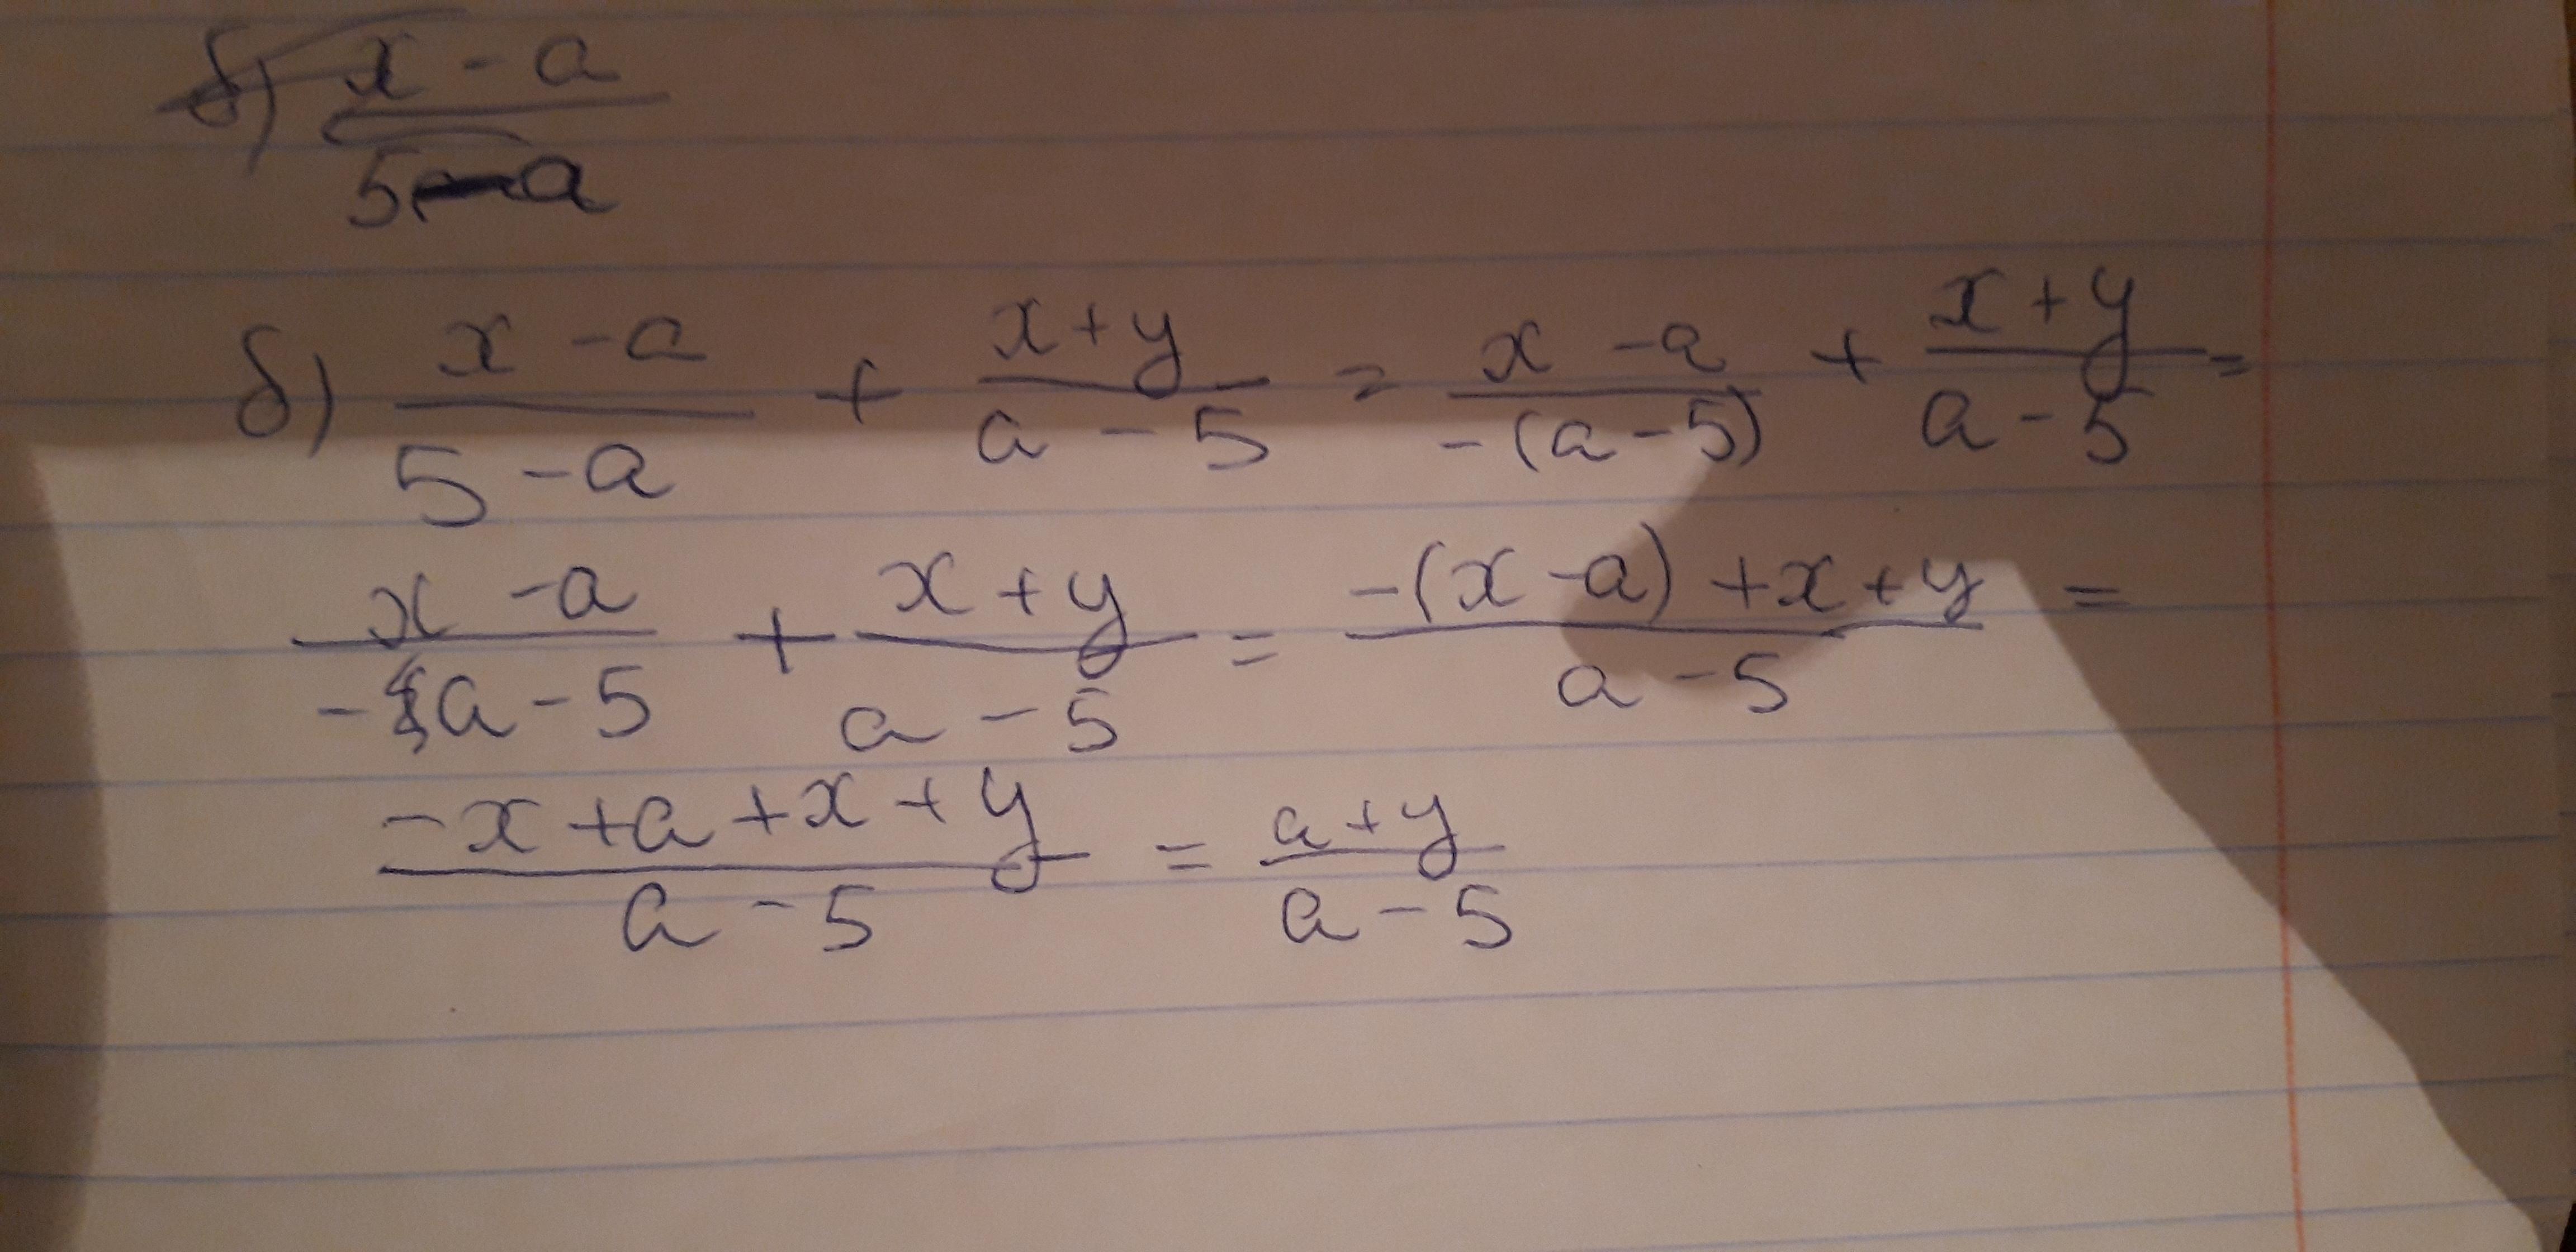 б) x - a / 5 - a
б) x - a / 5 - a + x + y / a - 5 = x - a / -(a - 5) + x + y / a - 5 =
x - a / - a - 5 + x + y / a - 5 = -(x - a) + x + y / a - 5 =
-x + a + x + y / a - 5 = a + y / a - 5